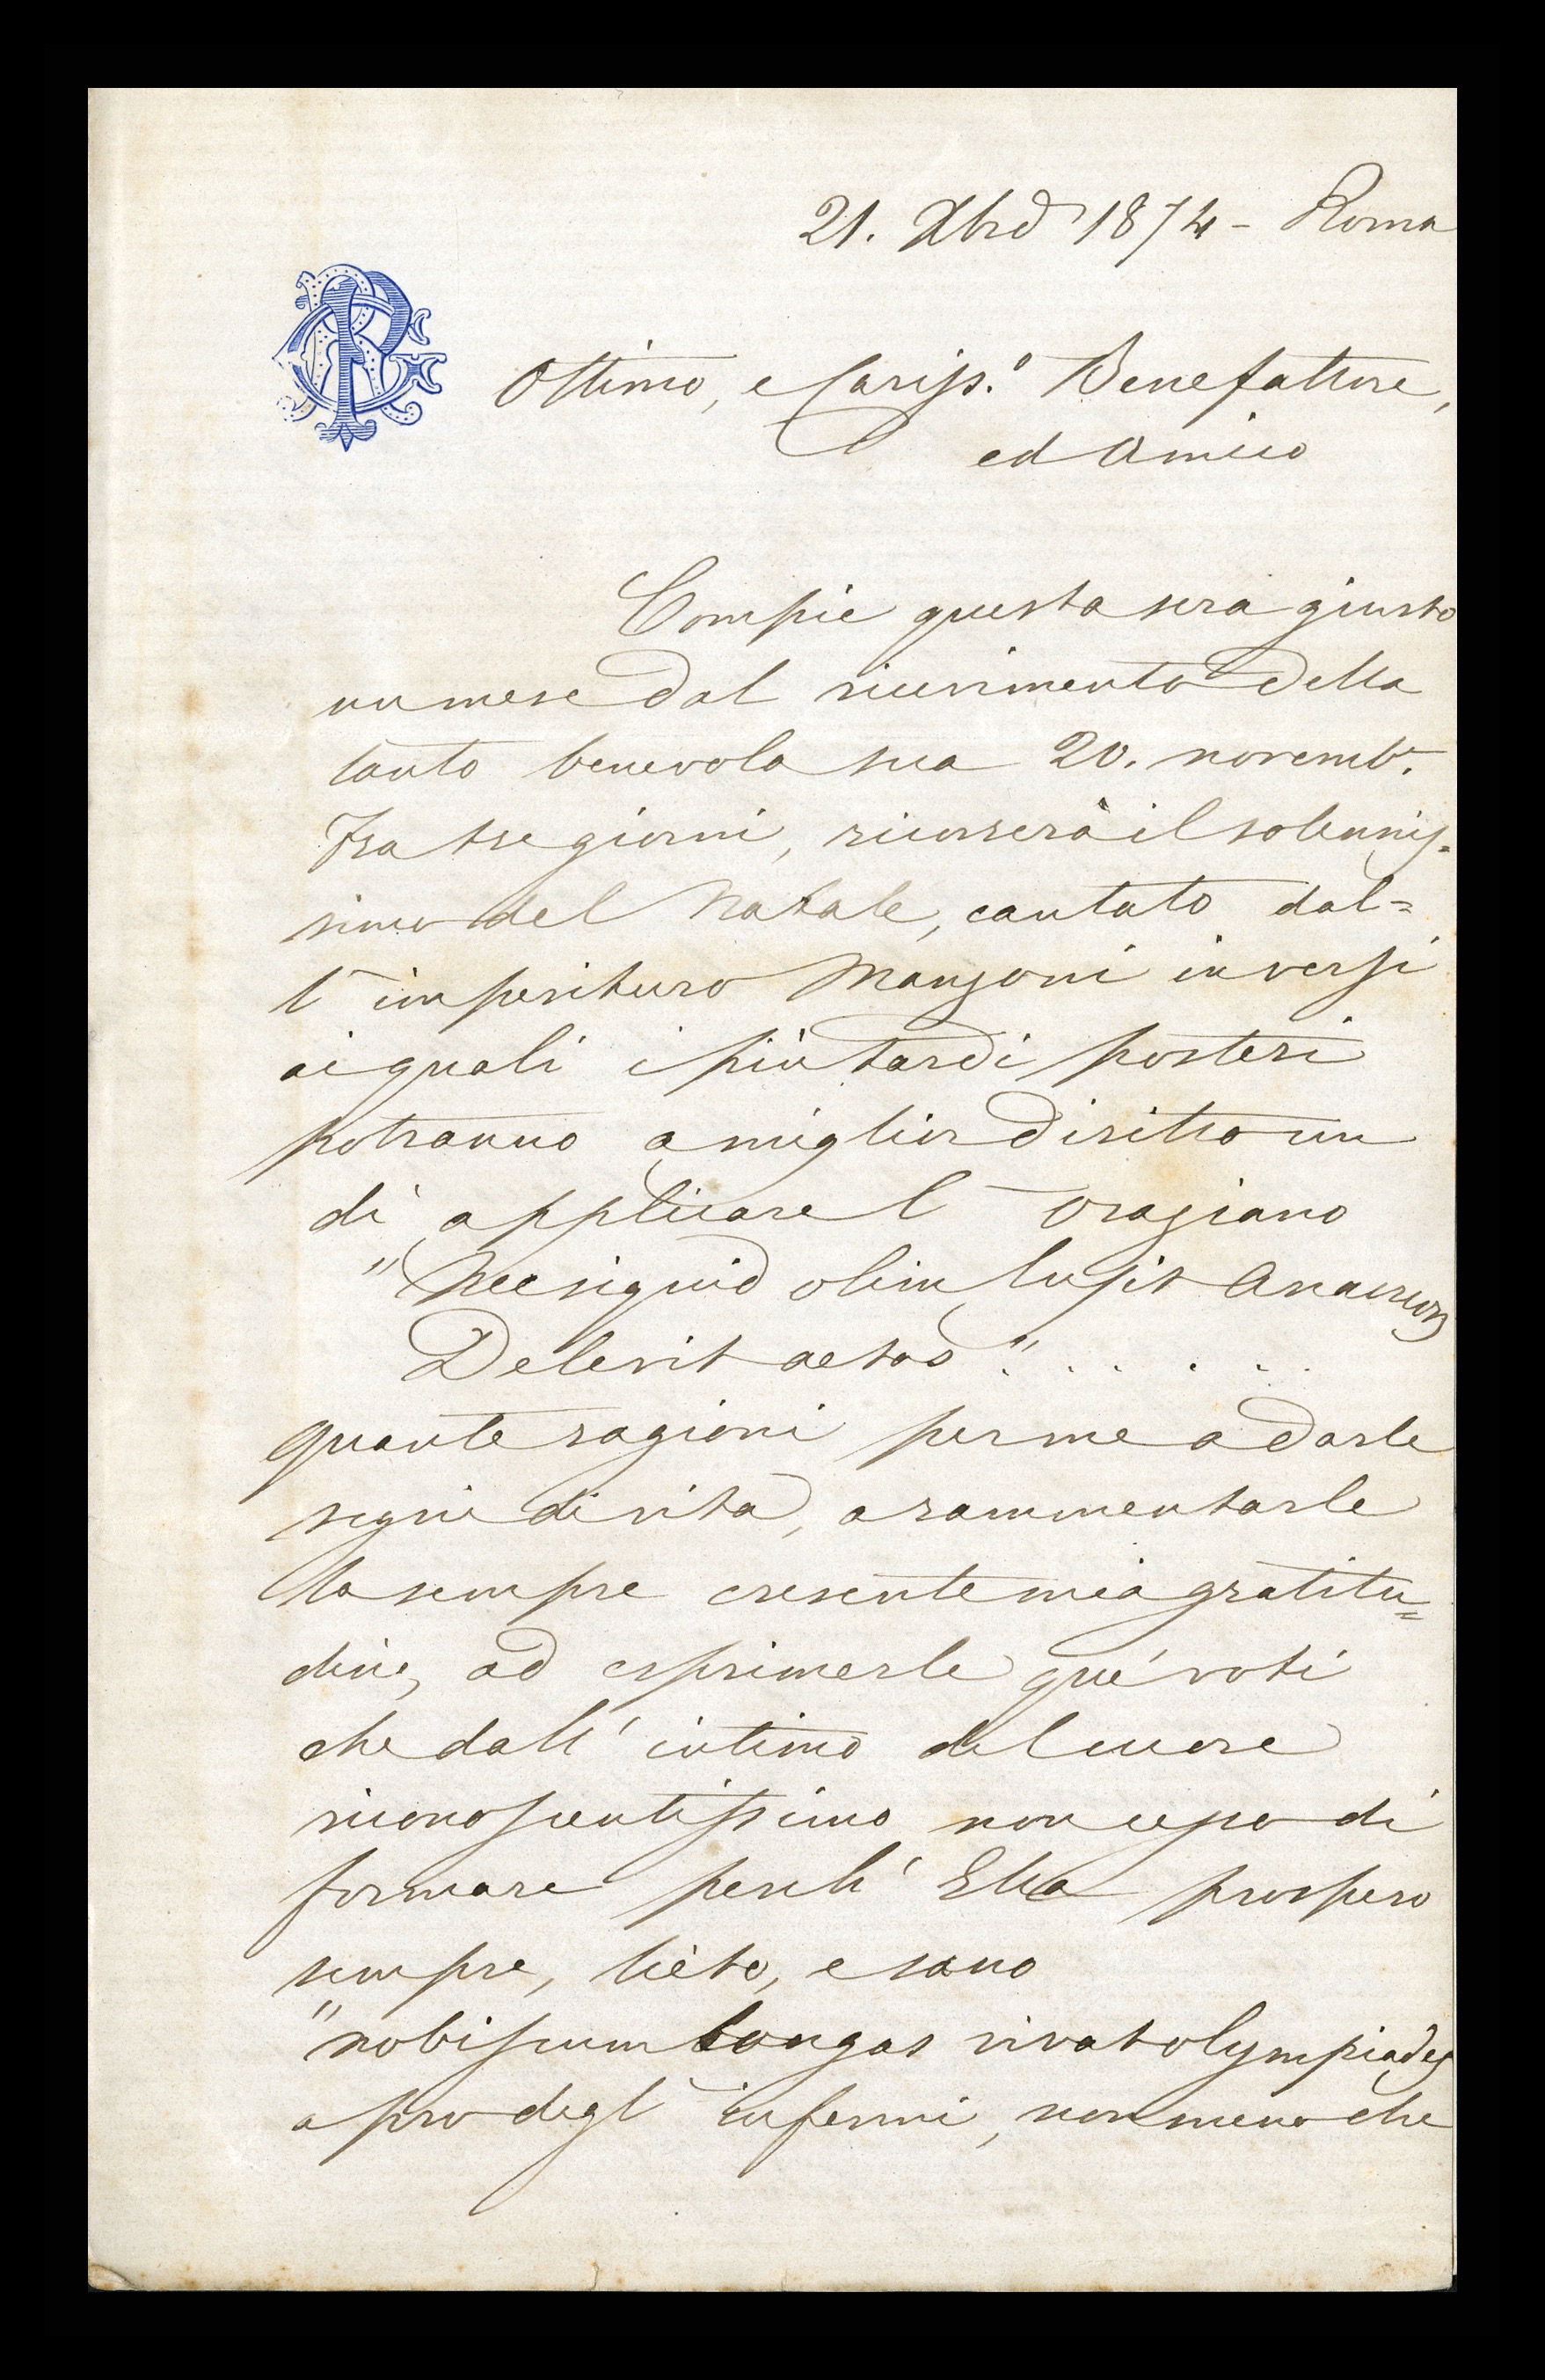 21. Xbre 1874 - Roma
Ottimo, e Cariss.º Benefattore,
ed Amico
Compie questa sera giusto
un mese dal ricevimento della
tanto benevola sua 20. novemb.
Fra tre giorni, ricorrerà il solennis=
simo del Natale, cantato dal=
l'imperituro Manzoni in versi
ai quali i più tardi posteri
potranno a miglior diritto un
dì applicare l' Oraziano
"Nec siquid olim lusit Anacreon
Delevit aetas" . . . . .
quante ragioni per me a darle
segni di vita, a rammentarle
la sempre crescente mia gratitu=
dine, ad esprimerle que' voti
che dall' intimo del cuore
riconoscentissimo non cesso di
formare perch' Ella prospero
sempre, lieto, e sano
"nobiscum longas vivat olympiades
a pro degl' infermi, non meno che